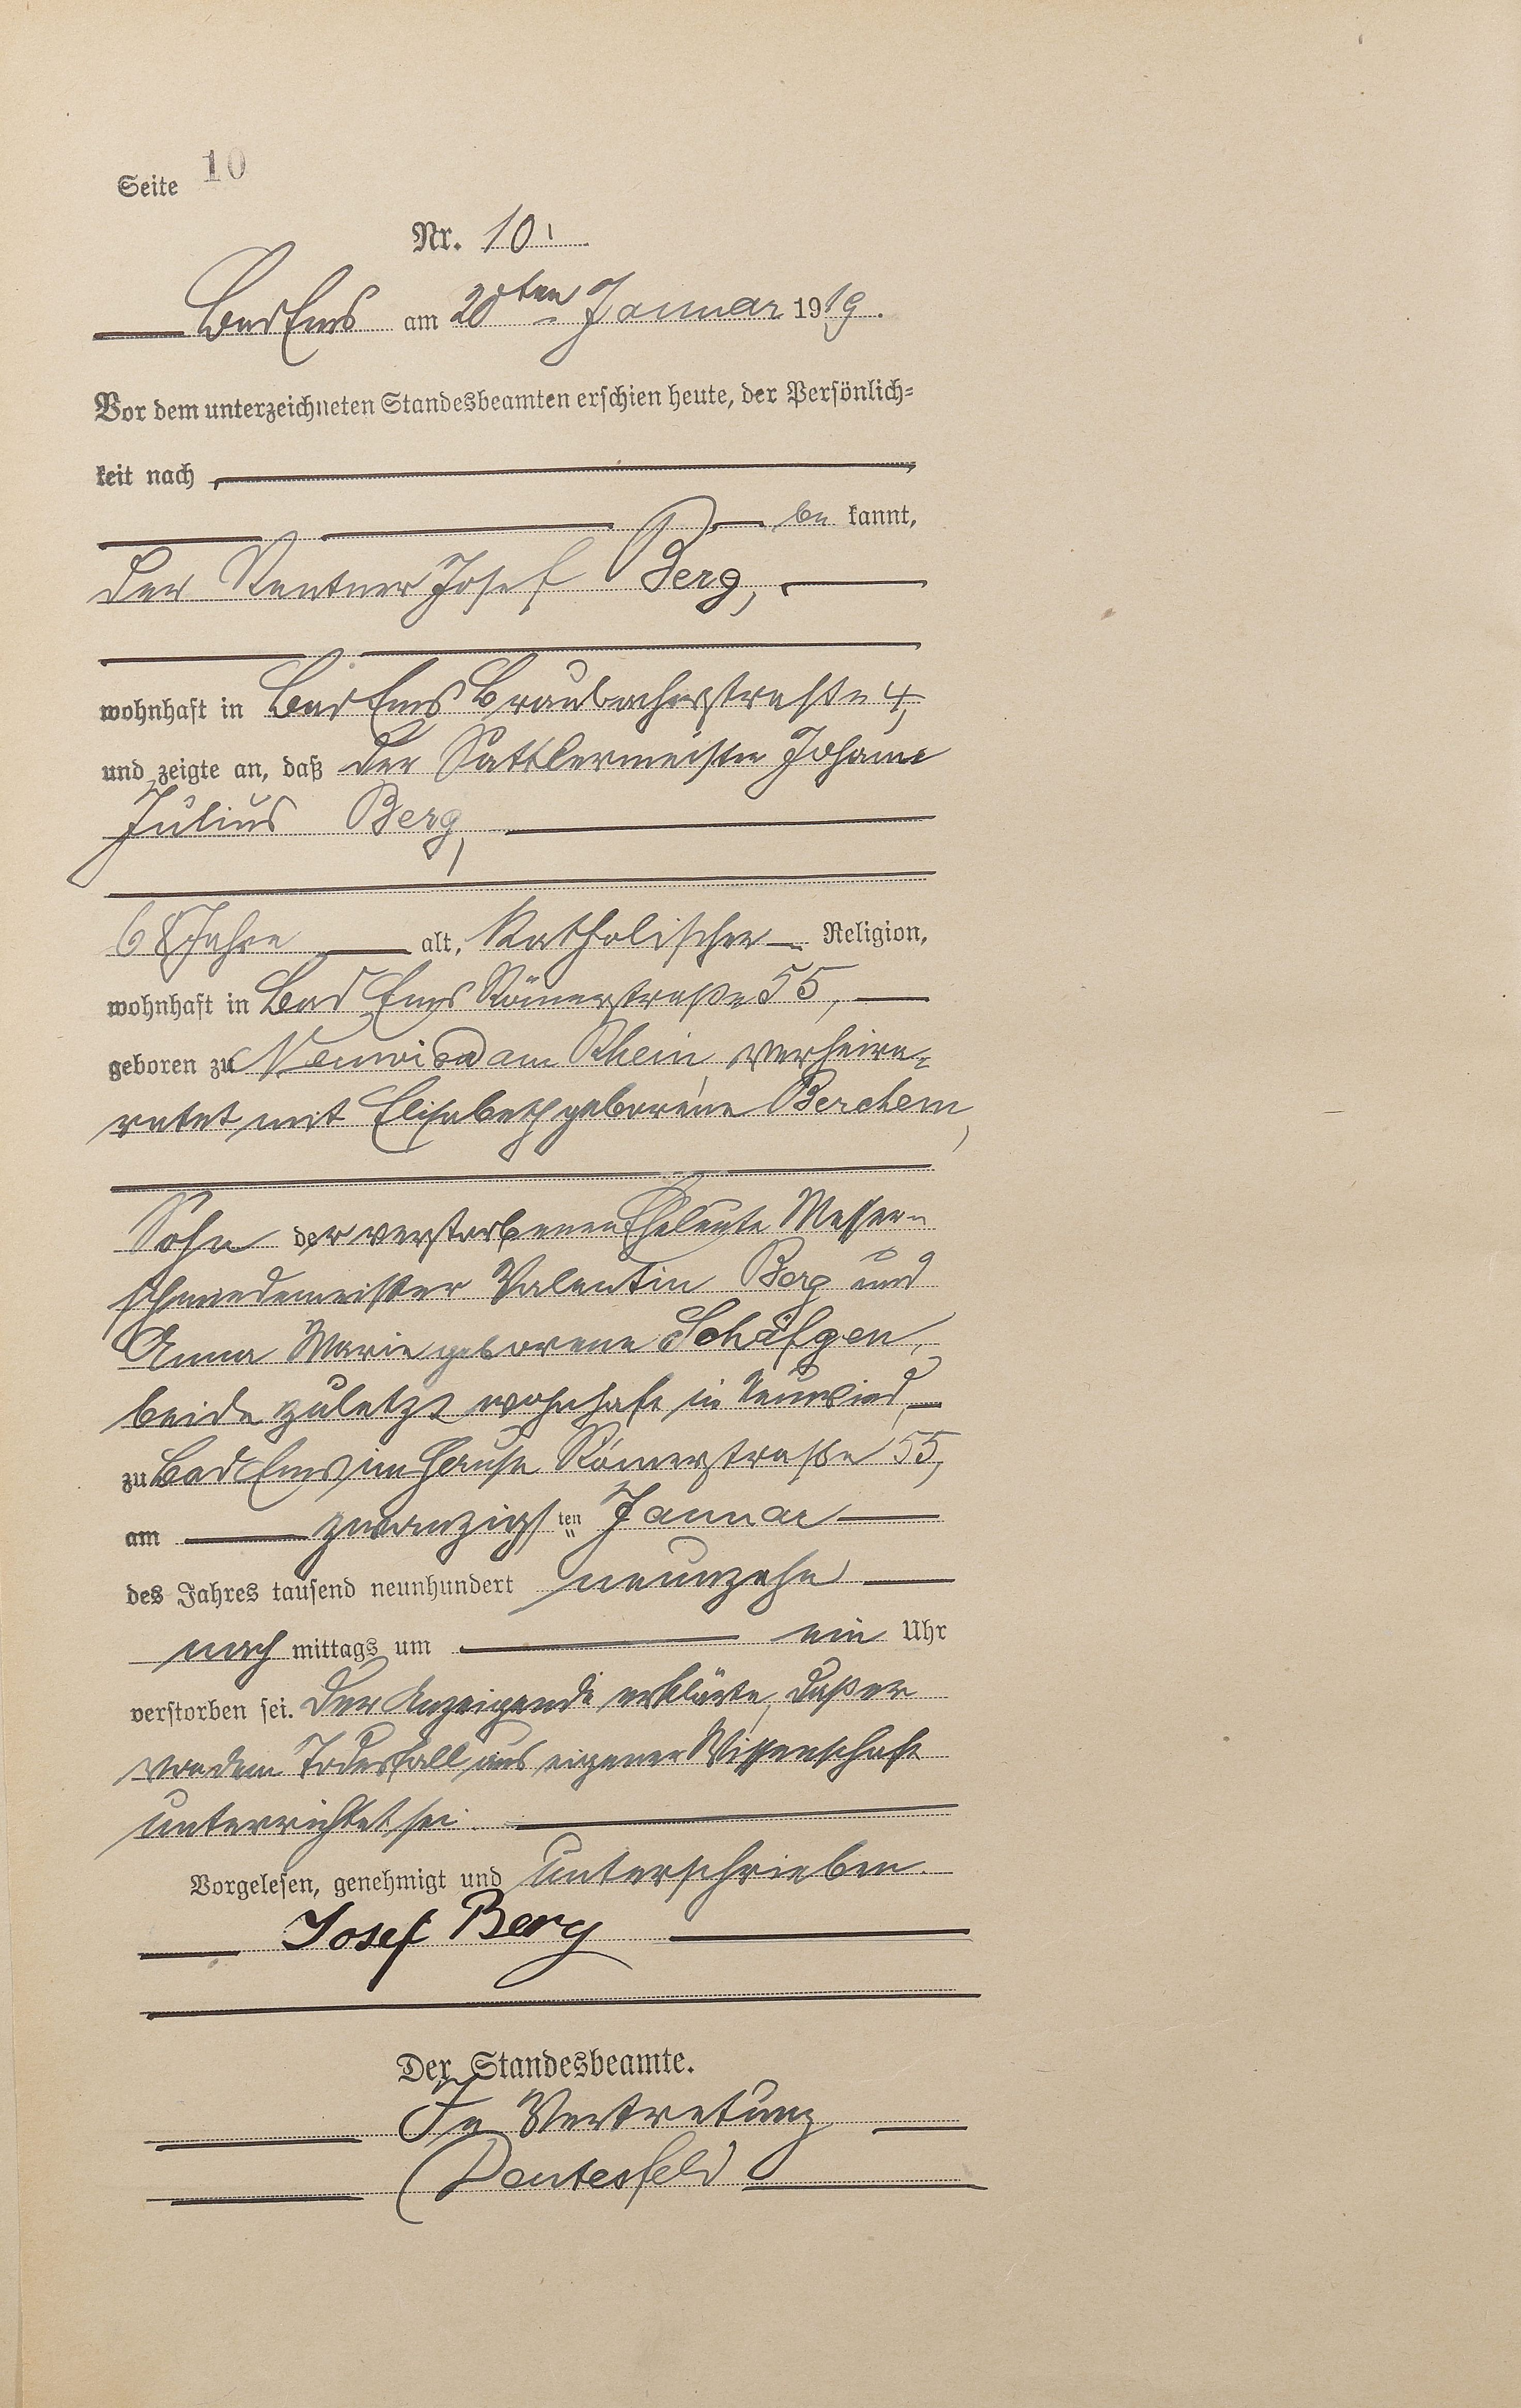 Seite 10
Nr. 10.
Bad Ems am 20ten Januar 1919.
Vor dem unterzeichneten Standesbeamten erschien heute, der Persönlich=
keit nach
be kannt,
der Rentner Josef Berg,
wohnhaft in Bad Ems Braubacherstraße 4,
und zeigte an, daß der Sattlermeister Johann
Julius Berg,
68 Jahre alt, katholischer Religion,
wohnhaft in Bad Ems Römerstraße 55,
geboren zu Neuwied am Rhein, verheira=
ratet mit Elisabeth geborene Berchem,
Sohn der verstorbenen Eheleute Messer=
schmiedemeister Valentin Berg und
Anna Maria geborene Schäfgen,
beide zuletzt wohnhaft in Neuwied,
zu Bad Ems im Hause Römerstraße 55,
am zwanzigsten Januar
des Jahres tausend neunhundert neunzehn
nach mittags um ein Uhr
verstorben sei. Der Anzeigende erklärte, daß er
von dem Todesfall aus eigener Wissenschaft
unterrichtet sei.
Vorgelesen, genehmigt und unterschrieben.
Josef Berg
Der Standesbeamte.
In Vertretung